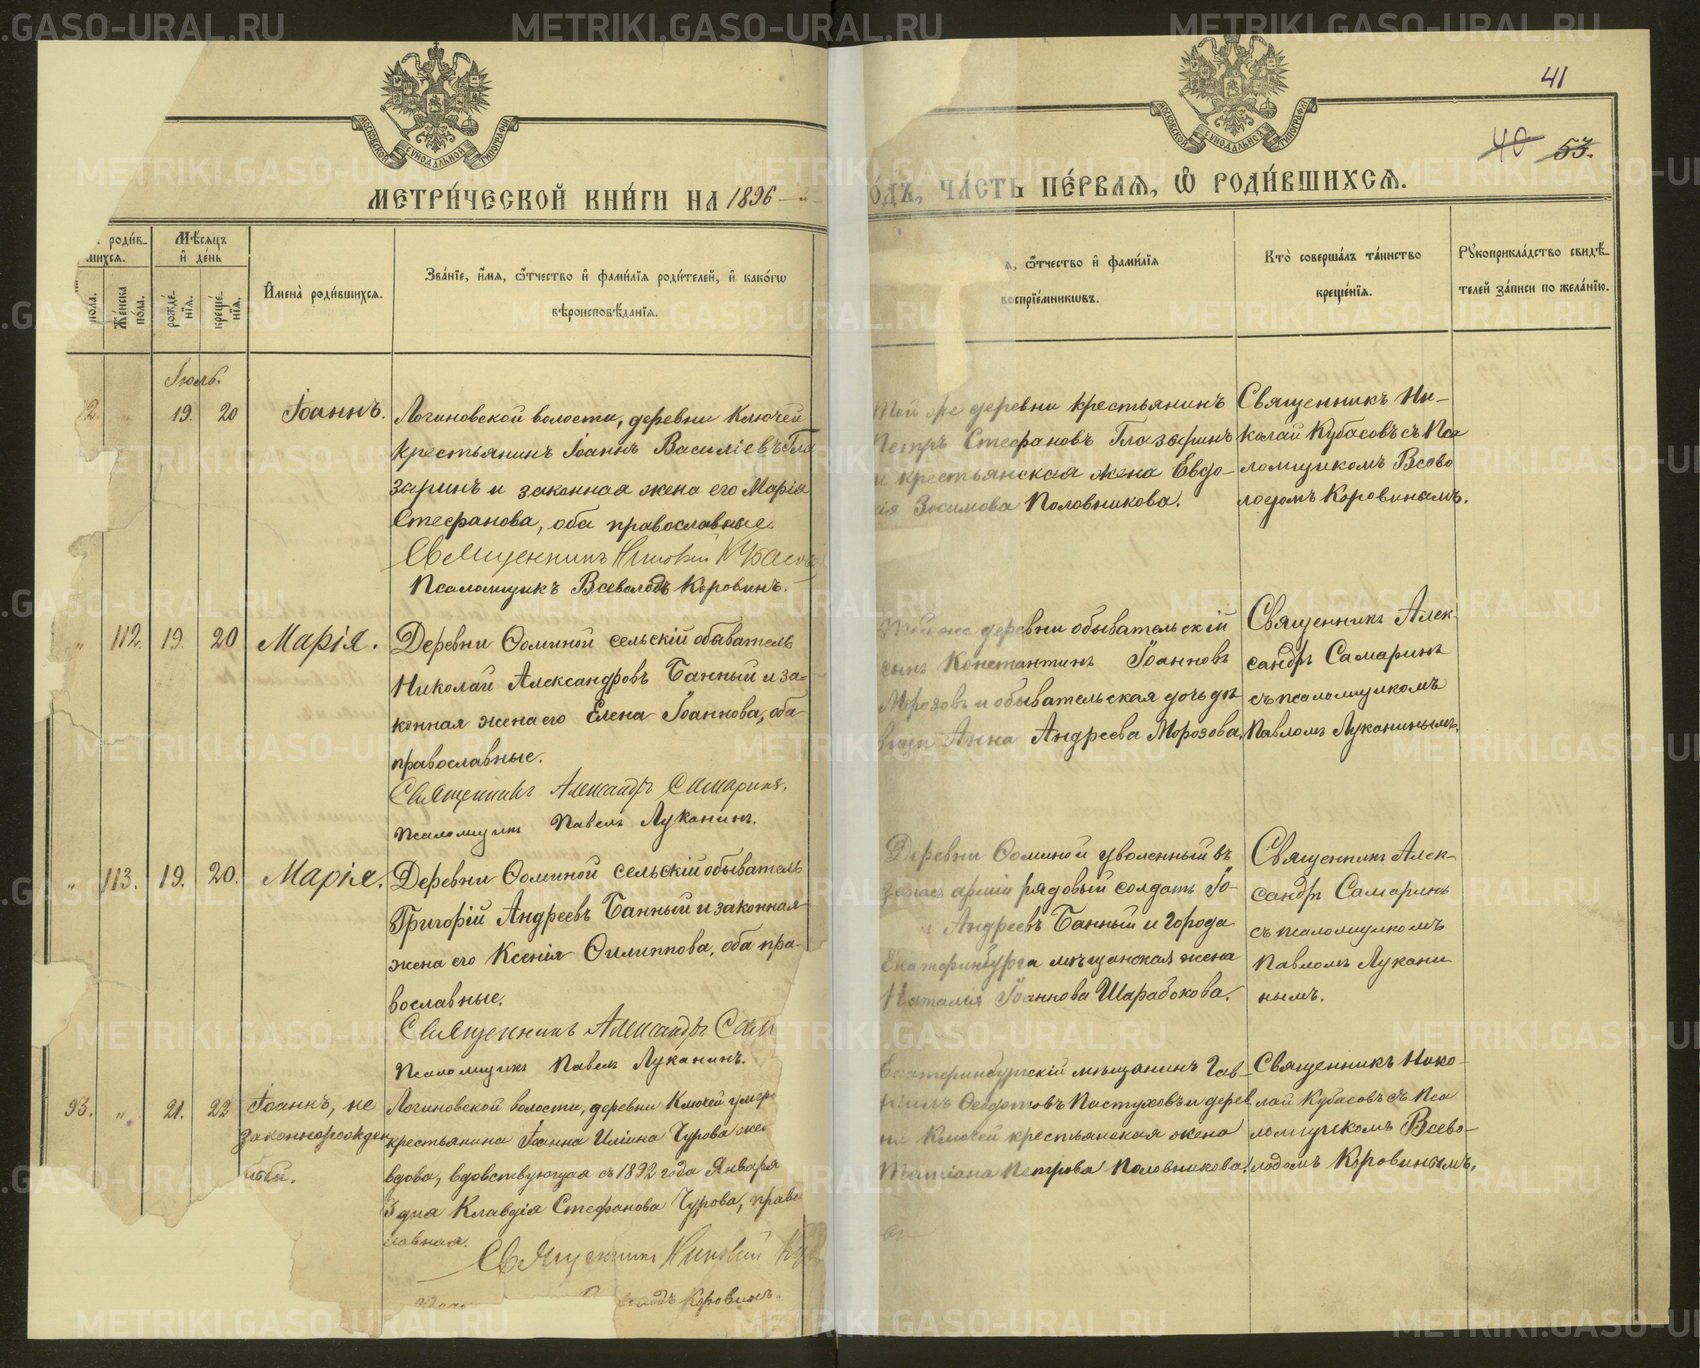 METRIKI.GASO-URAL.RU
41
40 53.
МОСКОВСКОЙ СѴНОДАЛЬНОЙ ТИПОГРАФІИ
МОСКОВСКОЙ СѴНОДАЛЬНОЙ ТИПОГРАФІИ
МЕТРИ́ЧЕСКОЙ КНИ́ГИ НА 1896
О́ДЪ, ЧА́СТЬ ПЕ́РВАѦ, Ѡ҆ РОДИ́ВШИХСѦ.
роди́в-
шихсѧ.
Мѣ́сѧцъ
и҆ де́нь
по́ла.
Же́нска
по́ла.
рожде́-
нїѧ.
креще́-
нїѧ.
И҆мена̀ роди́вшихсѧ.
Зва́нїе, и҆́мѧ, ѻ҆́тчество и҆ фами́лїѧ роди́телей, и҆ како́гѡ
вѣроисповѣ́данїѧ.
ѻ҆́тчество и҆ фами́лїѧ
воспрїе́мникѡвъ.
Кто̀ соверша́лъ та́инство
креще́нїѧ.
Рꙋкоприкла́дство свидѣ́-
телей за́писи по жела́нїю.
Іюль.
19. 20
Іоаннъ.
Логиновской волости, деревни Ключей
крестьянинъ Іоаннъ Василіевъ Гла
заринъ и законная жена его Марія
Стефанова, оба православные.
Священникъ Николай Кубасовъ
Псаломщикъ Всеволодъ Коровинъ.
Той же деревни крестьянинъ
Петръ Стефановъ Глазаринъ
и крестьянская жена Евдо-
кія Зосимова Половникова.
Священникъ Ни-
колай Кубасовъ съ Пса
ломщикомъ Всево
лодомъ Коровинымъ.
„ 112. 19. 20
Марія.
Деревни Ѳоминой сельскій обыватель
Николай Александровъ Банный и за-
конная жена его Елена Іоаннова, оба
православные.
Священникъ Александръ Самаринъ.
Псаломщикъ Павелъ Луканинъ.
Той же деревни обывательскій
сынъ Константинъ Іоанновъ
Морозовъ и обывательская дочь дѣ
вица Анна Андреева Морозова.
Священникъ Алек-
сандръ Самаринъ
съ псаломщикомъ
Павломъ Луканинымъ.
„ 113. 19. 20.
Марія.
Деревни Ѳоминой сельскій обыватель
Григорій Андреевъ Банный и законная
жена его Ксенія Филиппова, оба пра-
вославные.
Священникъ Александръ Сам
Псаломщикъ Павелъ Луканинъ.
Деревни Ѳоминой уволенный въ
запасъ арміи рядовый солдатъ Іо-
Андреевъ Банный и города
Екатеринбурга мѣщанская жена
Наталія Іоаннова Шарабокова.
Священникъ Алек-
сандръ Самаринъ
съ псаломщикомъ
Павломъ Лукани
нымъ.
93. „ 21. 22
Іоаннъ, не
законнорожден
ный.
Логиновской волости, деревни Ключей умер
крестьянина Іоанна Иліина Чурова же
вдова, вдовствующая съ 1892 года Января
3 дня Клавдія Стефанова Чурова, право
славная.
Священникъ Николай Куб
Коровинъ.
Екатеринбургскій мѣщанинъ Гав-
ріилъ Ѳеодотовъ Пастуховъ и дерев
ни Ключей крестьянская жена
Татіана Петрова Половникова.
Священникъ Нико-
лай Кубасовъ съ Пса
ломщикомъ Всево-
лодомъ Коровинымъ.